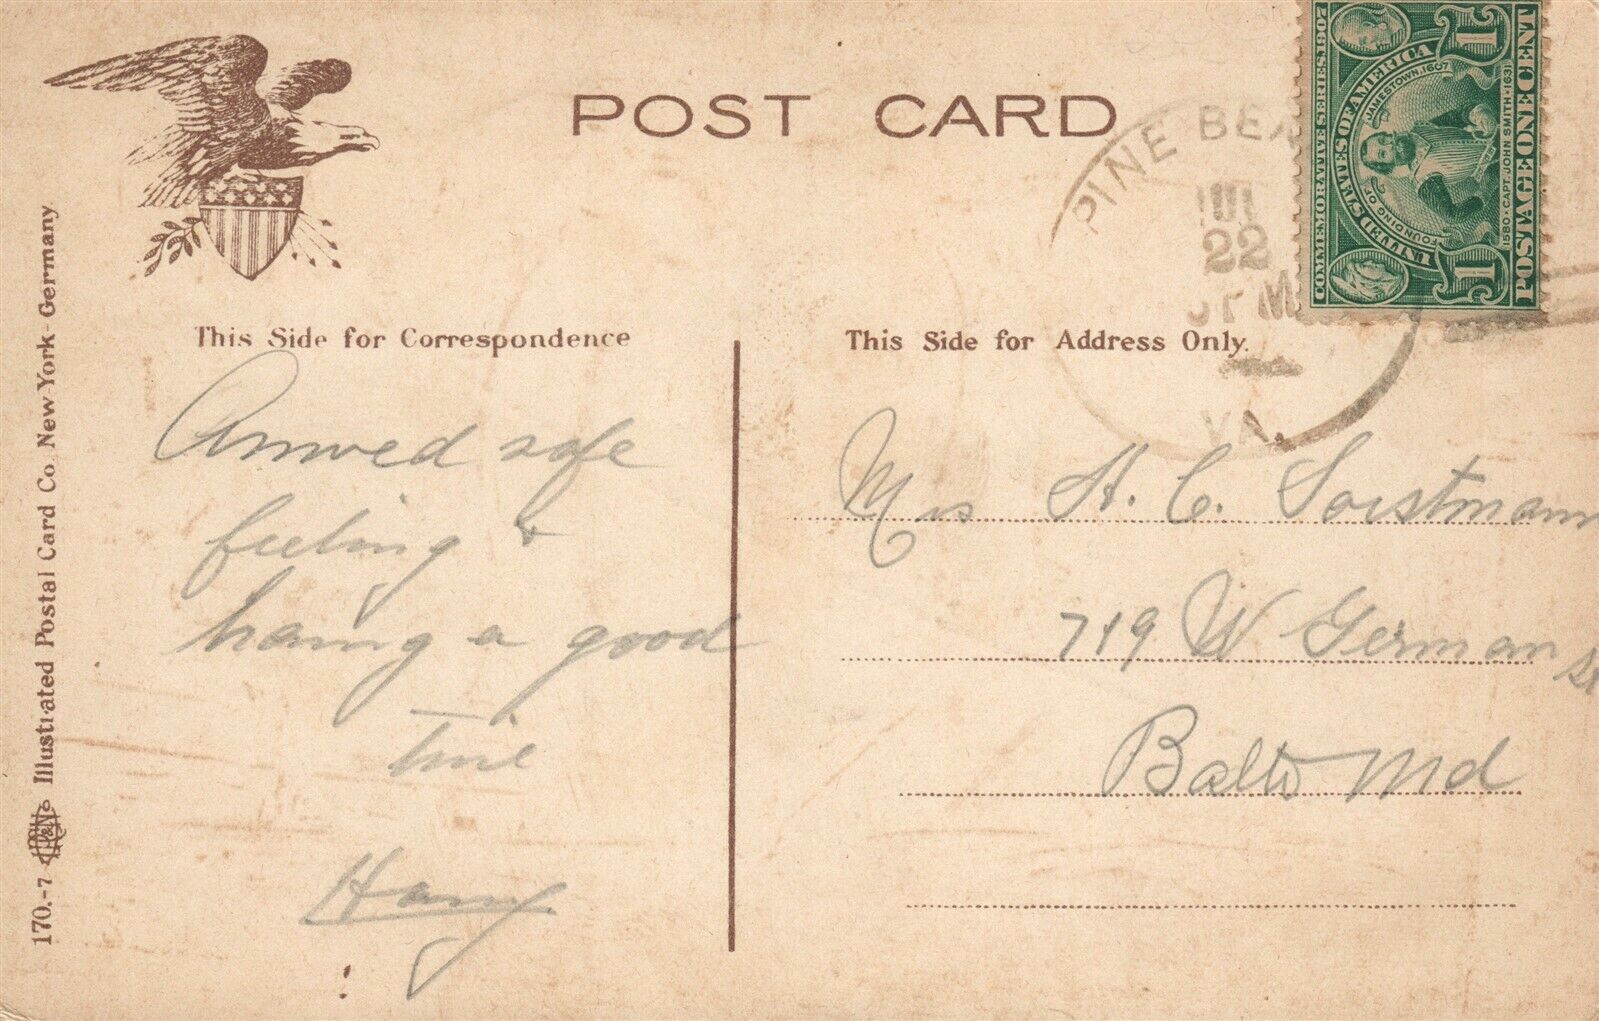 POST CARD
PINE BEA
JUL
22
PM
VA.
COMMEMORATIVE SERIES 1907
UNITED STATES OF AMERICA
FOUNDING OF JAMESTOWN, 1607
1580 · CAPT. JOHN SMITH · 1631
1 POSTAGE ONE CENT 1
This Side for Correspondence
This Side for Address Only.
Arrived safe
feeling &
having a good
time
Harry
Mrs H. C.
719 W German St
Balto Md
170.-7 Illustrated Postal Card Co. New York-Germany